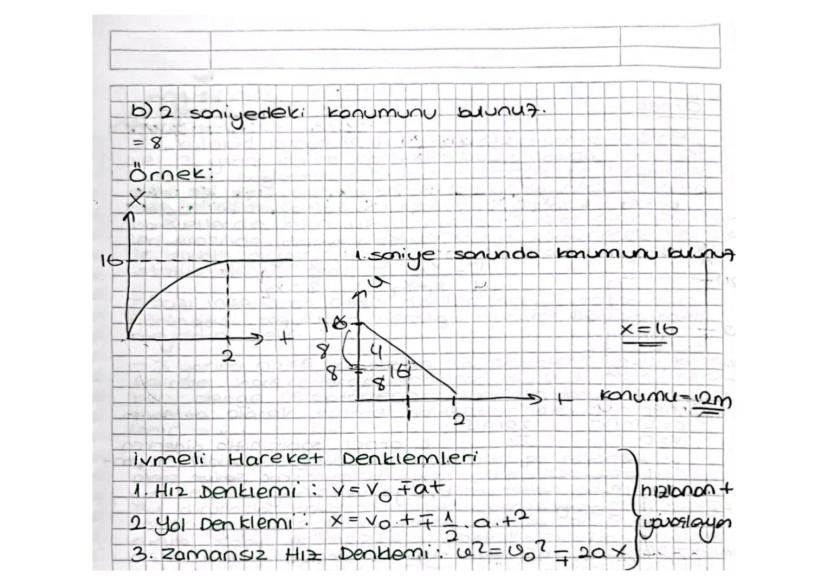 b) 2 saniyedeki konumunu bulunuz.
= 8
Örnek:
X
16
2
t
1. saniye sonunda konumunu bulunuz
v
16
8
4
8
8
16
1
2
t
x=16
konumu=12m
ivmeli Hareket Denklemleri
1. Hız Denklemi: v=v₀ ∓at
2 Yol Denklemi: x=v₀.t ∓ 1/2 .a.t²
3. Zamansız Hız Denklemi: v²=v₀² ∓ 2ax
hızlanan +
yavaşlayan
- - - -